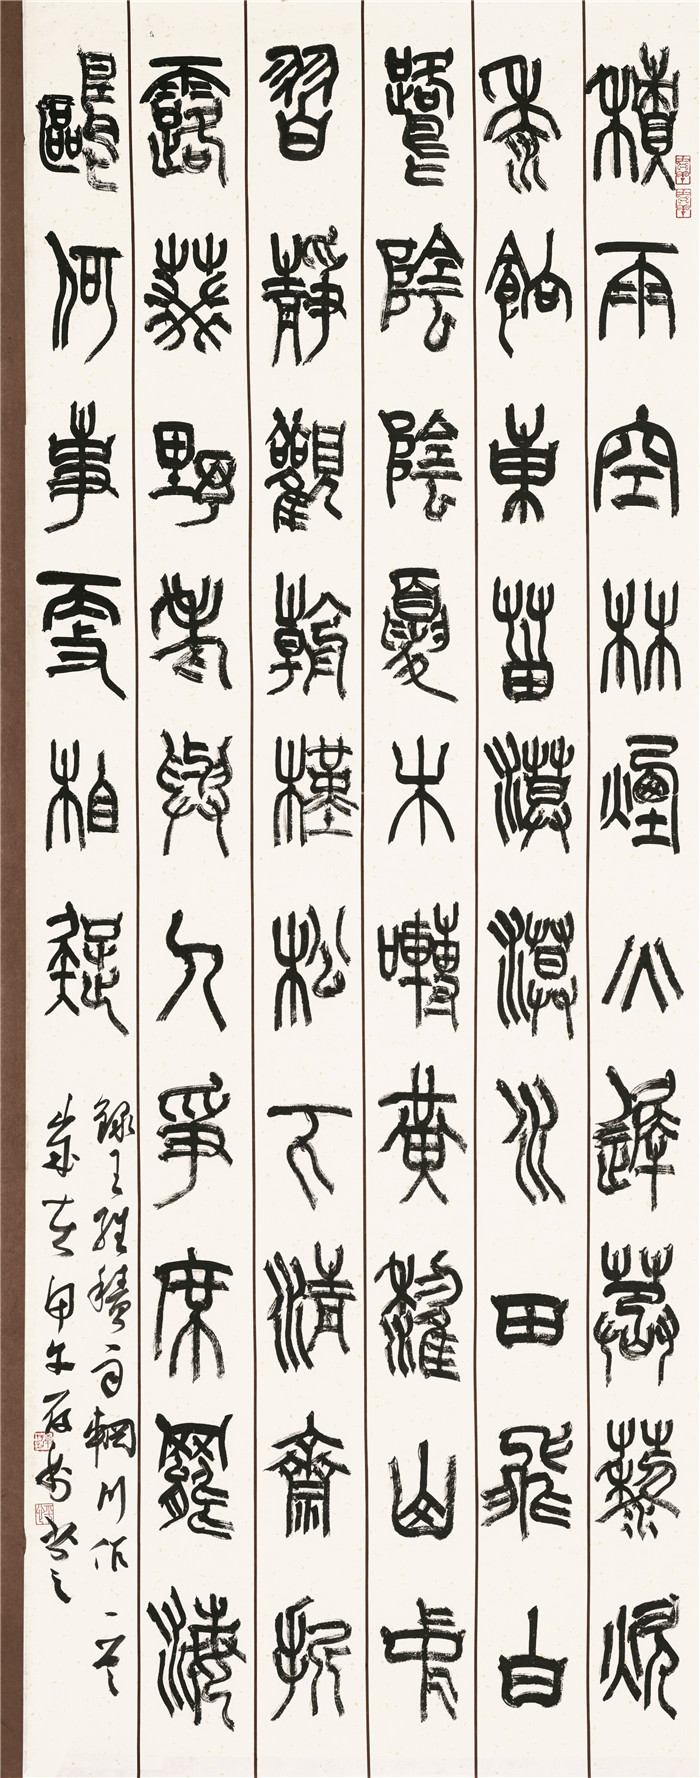 積雨空林煙火遲蒸藜炊
黍餉東菑漠漠水田飛白
鷺陰陰夏木囀黃鸝山中
習靜觀朝槿松下清齋折
露葵野老與人爭席罷海
鷗何事更相疑
錄王維積雨輞川作一首
歲在甲午書之